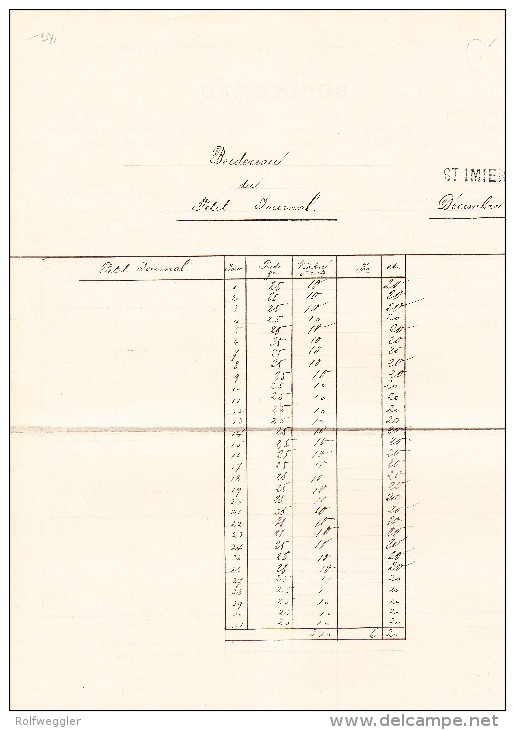 ST IMIER
Bordereau
du
Petit Journal.
Décembre
Petit Journal
1 25 10 20
2 25 10 20
3 25 10 20
4 25 10 20
5 25 10 20
6 25 10 20
7 25 10 20
8 25 10 20
9 25 10 20
10 25 10 20
11 25 10 20
12 25 10 20
13 25 10 20
14 25 10 20
15 25 10 20
16 25 10 20
17 25 10 20
18 25 10 20
19 25 10 20
20 25 10 20
21 25 10 20
22 25 10 20
23 25 10 20
24 25 10 20
25 25 10 20
26 25 10 20
27 25 10 20
28 25 10 20
29 25 10 20
30 25 10 20
31 25 10 20
310 6 20
Rolfweggler
http://www.delcampe.net